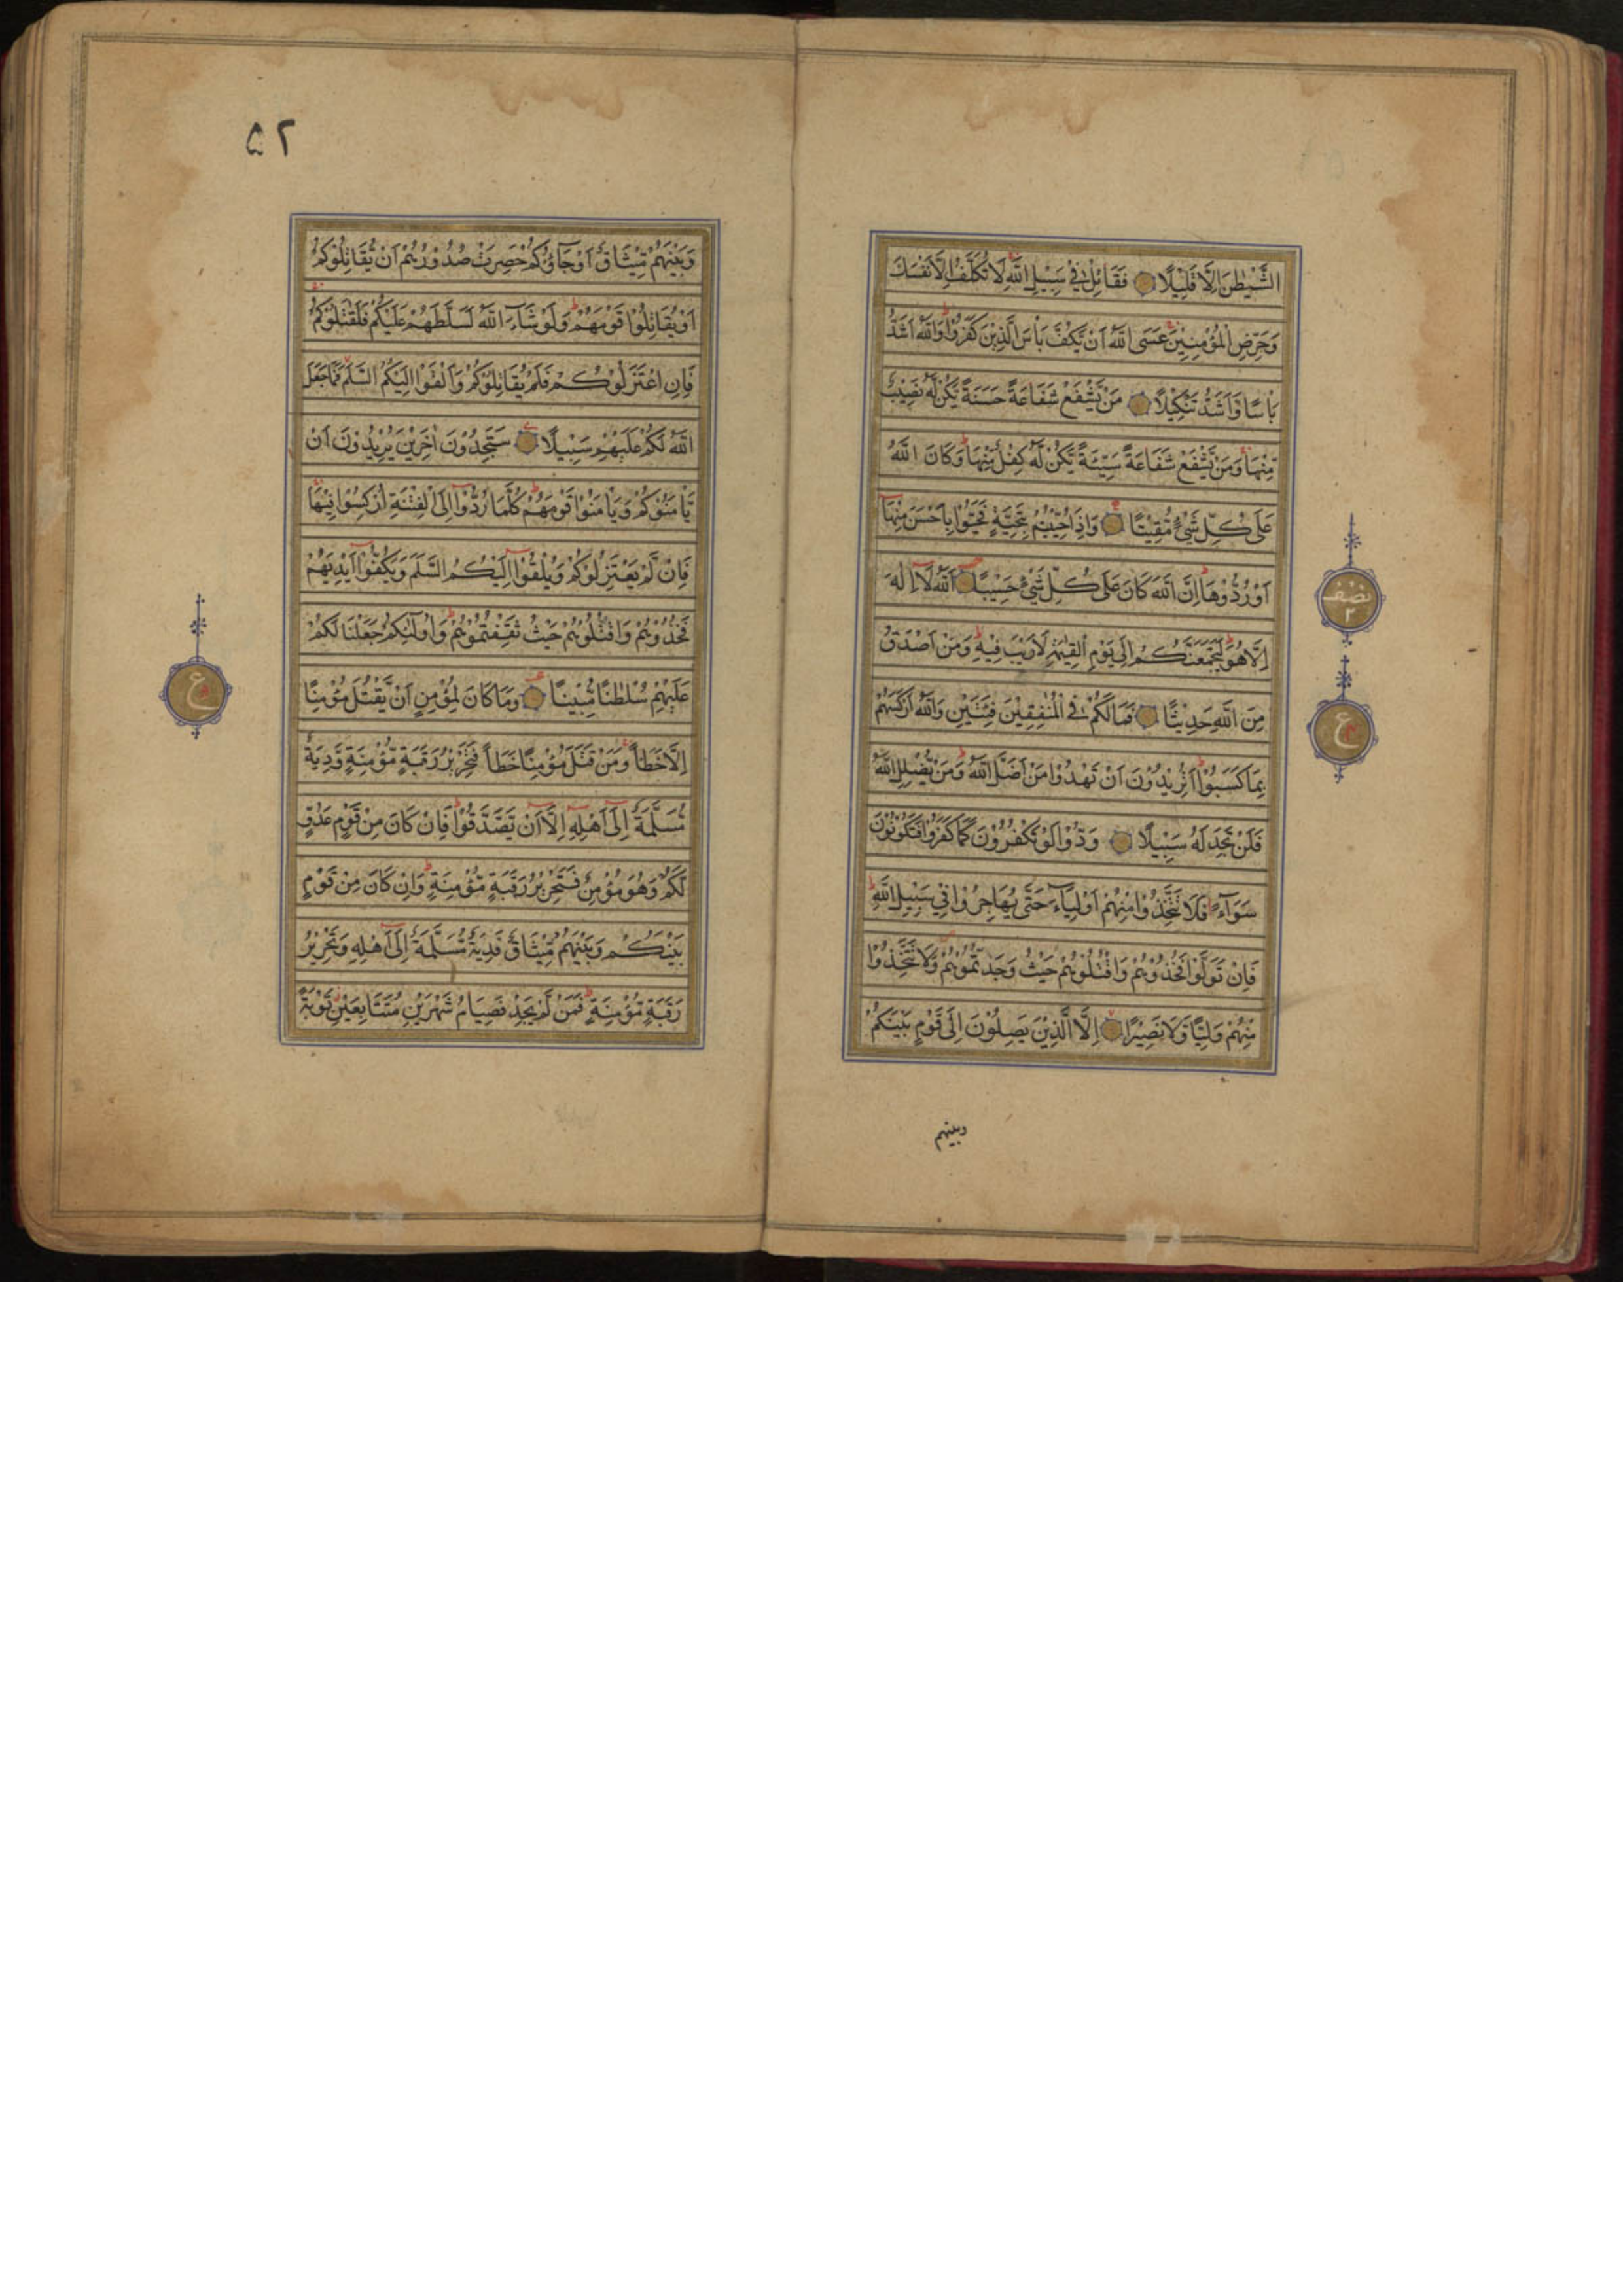 الشَّيْطٰنَ اِلَّا قَلِيْلًا فَقَاتِلْ فِيْ سَبِيْلِ اللّٰهِ لَا تُكَلَّفُ اِلَّا نَفْسَكَ
وَحَرِّضِ الْمُؤْمِنِيْنَ عَسَى اللّٰهُ اَنْ يَّكُفَّ بَاْسَ الَّذِيْنَ كَفَرُوْا وَاللّٰهُ اَشَدُّ
بَاْسًا وَّاَشَدُّ تَنْكِيْلًا مَنْ يَّشْفَعْ شَفَاعَةً حَسَنَةً يَّكُنْ لَّهٗ نَصِيْبٌ
مِّنْهَا وَمَنْ يَّشْفَعْ شَفَاعَةً سَيِّئَةً يَّكُنْ لَّهٗ كِفْلٌ مِّنْهَا وَكَانَ اللّٰهُ
عَلٰى كُلِّ شَيْءٍ مُّقِيْتًا وَاِذَا حُيِّيْتُمْ بِتَحِيَّةٍ فَحَيُّوْا بِاَحْسَنَ مِنْهَا
اَوْ رُدُّوْهَا اِنَّ اللّٰهَ كَانَ عَلٰى كُلِّ شَيْءٍ حَسِيْبًا اَللّٰهُ لَا اِلٰهَ
اِلَّا هُوَ لَيَجْمَعَنَّكُمْ اِلٰى يَوْمِ الْقِيٰمَةِ لَا رَيْبَ فِيْهِ وَمَنْ اَصْدَقُ
مِنَ اللّٰهِ حَدِيْثًا فَمَا لَكُمْ فِي الْمُنٰفِقِيْنَ فِئَتَيْنِ وَاللّٰهُ اَرْكَسَهُمْ
بِمَا كَسَبُوْا اَتُرِيْدُوْنَ اَنْ تَهْدُوْا مَنْ اَضَلَّ اللّٰهُ وَمَنْ يُّضْلِلِ اللّٰهُ
فَلَنْ تَجِدَ لَهٗ سَبِيْلًا وَدُّوْا لَوْ تَكْفُرُوْنَ كَمَا كَفَرُوْا فَتَكُوْنُوْنَ
سَوَآءً فَلَا تَتَّخِذُوْا مِنْهُمْ اَوْلِيَآءَ حَتّٰى يُهَاجِرُوْا فِيْ سَبِيْلِ اللّٰهِ
فَاِنْ تَوَلَّوْا فَخُذُوْهُمْ وَاقْتُلُوْهُمْ حَيْثُ وَجَدْتُّمُوْهُمْ وَلَا تَتَّخِذُوْا
مِنْهُمْ وَلِيًّا وَّلَا نَصِيْرًا اِلَّا الَّذِيْنَ يَصِلُوْنَ اِلٰى قَوْمٍ بَيْنَكُمْ
وبينهم
نصف
٢
ع
۵۲
وَبَيْنَهُمْ مِّيْثَاقٌ اَوْ جَآؤُكُمْ حَصِرَتْ صُدُوْرُهُمْ اَنْ يُّقَاتِلُوْكُمْ
اَوْ يُقَاتِلُوْا قَوْمَهُمْ وَلَوْ شَآءَ اللّٰهُ لَسَلَّطَهُمْ عَلَيْكُمْ فَلَقٰتَلُوْكُمْ
فَاِنِ اعْتَزَلُوْكُمْ فَلَمْ يُقَاتِلُوْكُمْ وَاَلْقَوْا اِلَيْكُمُ السَّلَمَ فَمَا جَعَلَ
اللّٰهُ لَكُمْ عَلَيْهِمْ سَبِيْلًا سَتَجِدُوْنَ اٰخَرِيْنَ يُرِيْدُوْنَ اَنْ
يَّاْمَنُوْكُمْ وَيَاْمَنُوْا قَوْمَهُمْ كُلَّمَا رُدُّوْا اِلَى الْفِتْنَةِ اُرْكِسُوْا فِيْهَا
فَاِنْ لَّمْ يَعْتَزِلُوْكُمْ وَيُلْقُوْا اِلَيْكُمُ السَّلَمَ وَيَكُفُّوْا اَيْدِيَهُمْ
فَخُذُوْهُمْ وَاقْتُلُوْهُمْ حَيْثُ ثَقِفْتُمُوْهُمْ وَاُولٰٓئِكُمْ جَعَلْنَا لَكُمْ
عَلَيْهِمْ سُلْطٰنًا مُّبِيْنًا وَمَا كَانَ لِمُؤْمِنٍ اَنْ يَّقْتُلَ مُؤْمِنًا
اِلَّا خَطَاً وَمَنْ قَتَلَ مُؤْمِنًا خَطَاً فَتَحْرِيْرُ رَقَبَةٍ مُّؤْمِنَةٍ وَّدِيَةٌ
مُّسَلَّمَةٌ اِلٰٓى اَهْلِهٖ اِلَّآ اَنْ يَّصَّدَّقُوْا فَاِنْ كَانَ مِنْ قَوْمٍ عَدُوٍّ
لَّكُمْ وَهُوَ مُؤْمِنٌ فَتَحْرِيْرُ رَقَبَةٍ مُّؤْمِنَةٍ وَاِنْ كَانَ مِنْ قَوْمٍ
بَيْنَكُمْ وَبَيْنَهُمْ مِّيْثَاقٌ فَدِيَةٌ مُّسَلَّمَةٌ اِلٰٓى اَهْلِهٖ وَتَحْرِيْرُ
رَقَبَةٍ مُّؤْمِنَةٍ فَمَنْ لَّمْ يَجِدْ فَصِيَامُ شَهْرَيْنِ مُتَتَابِعَيْنِ تَوْبَةً
ع